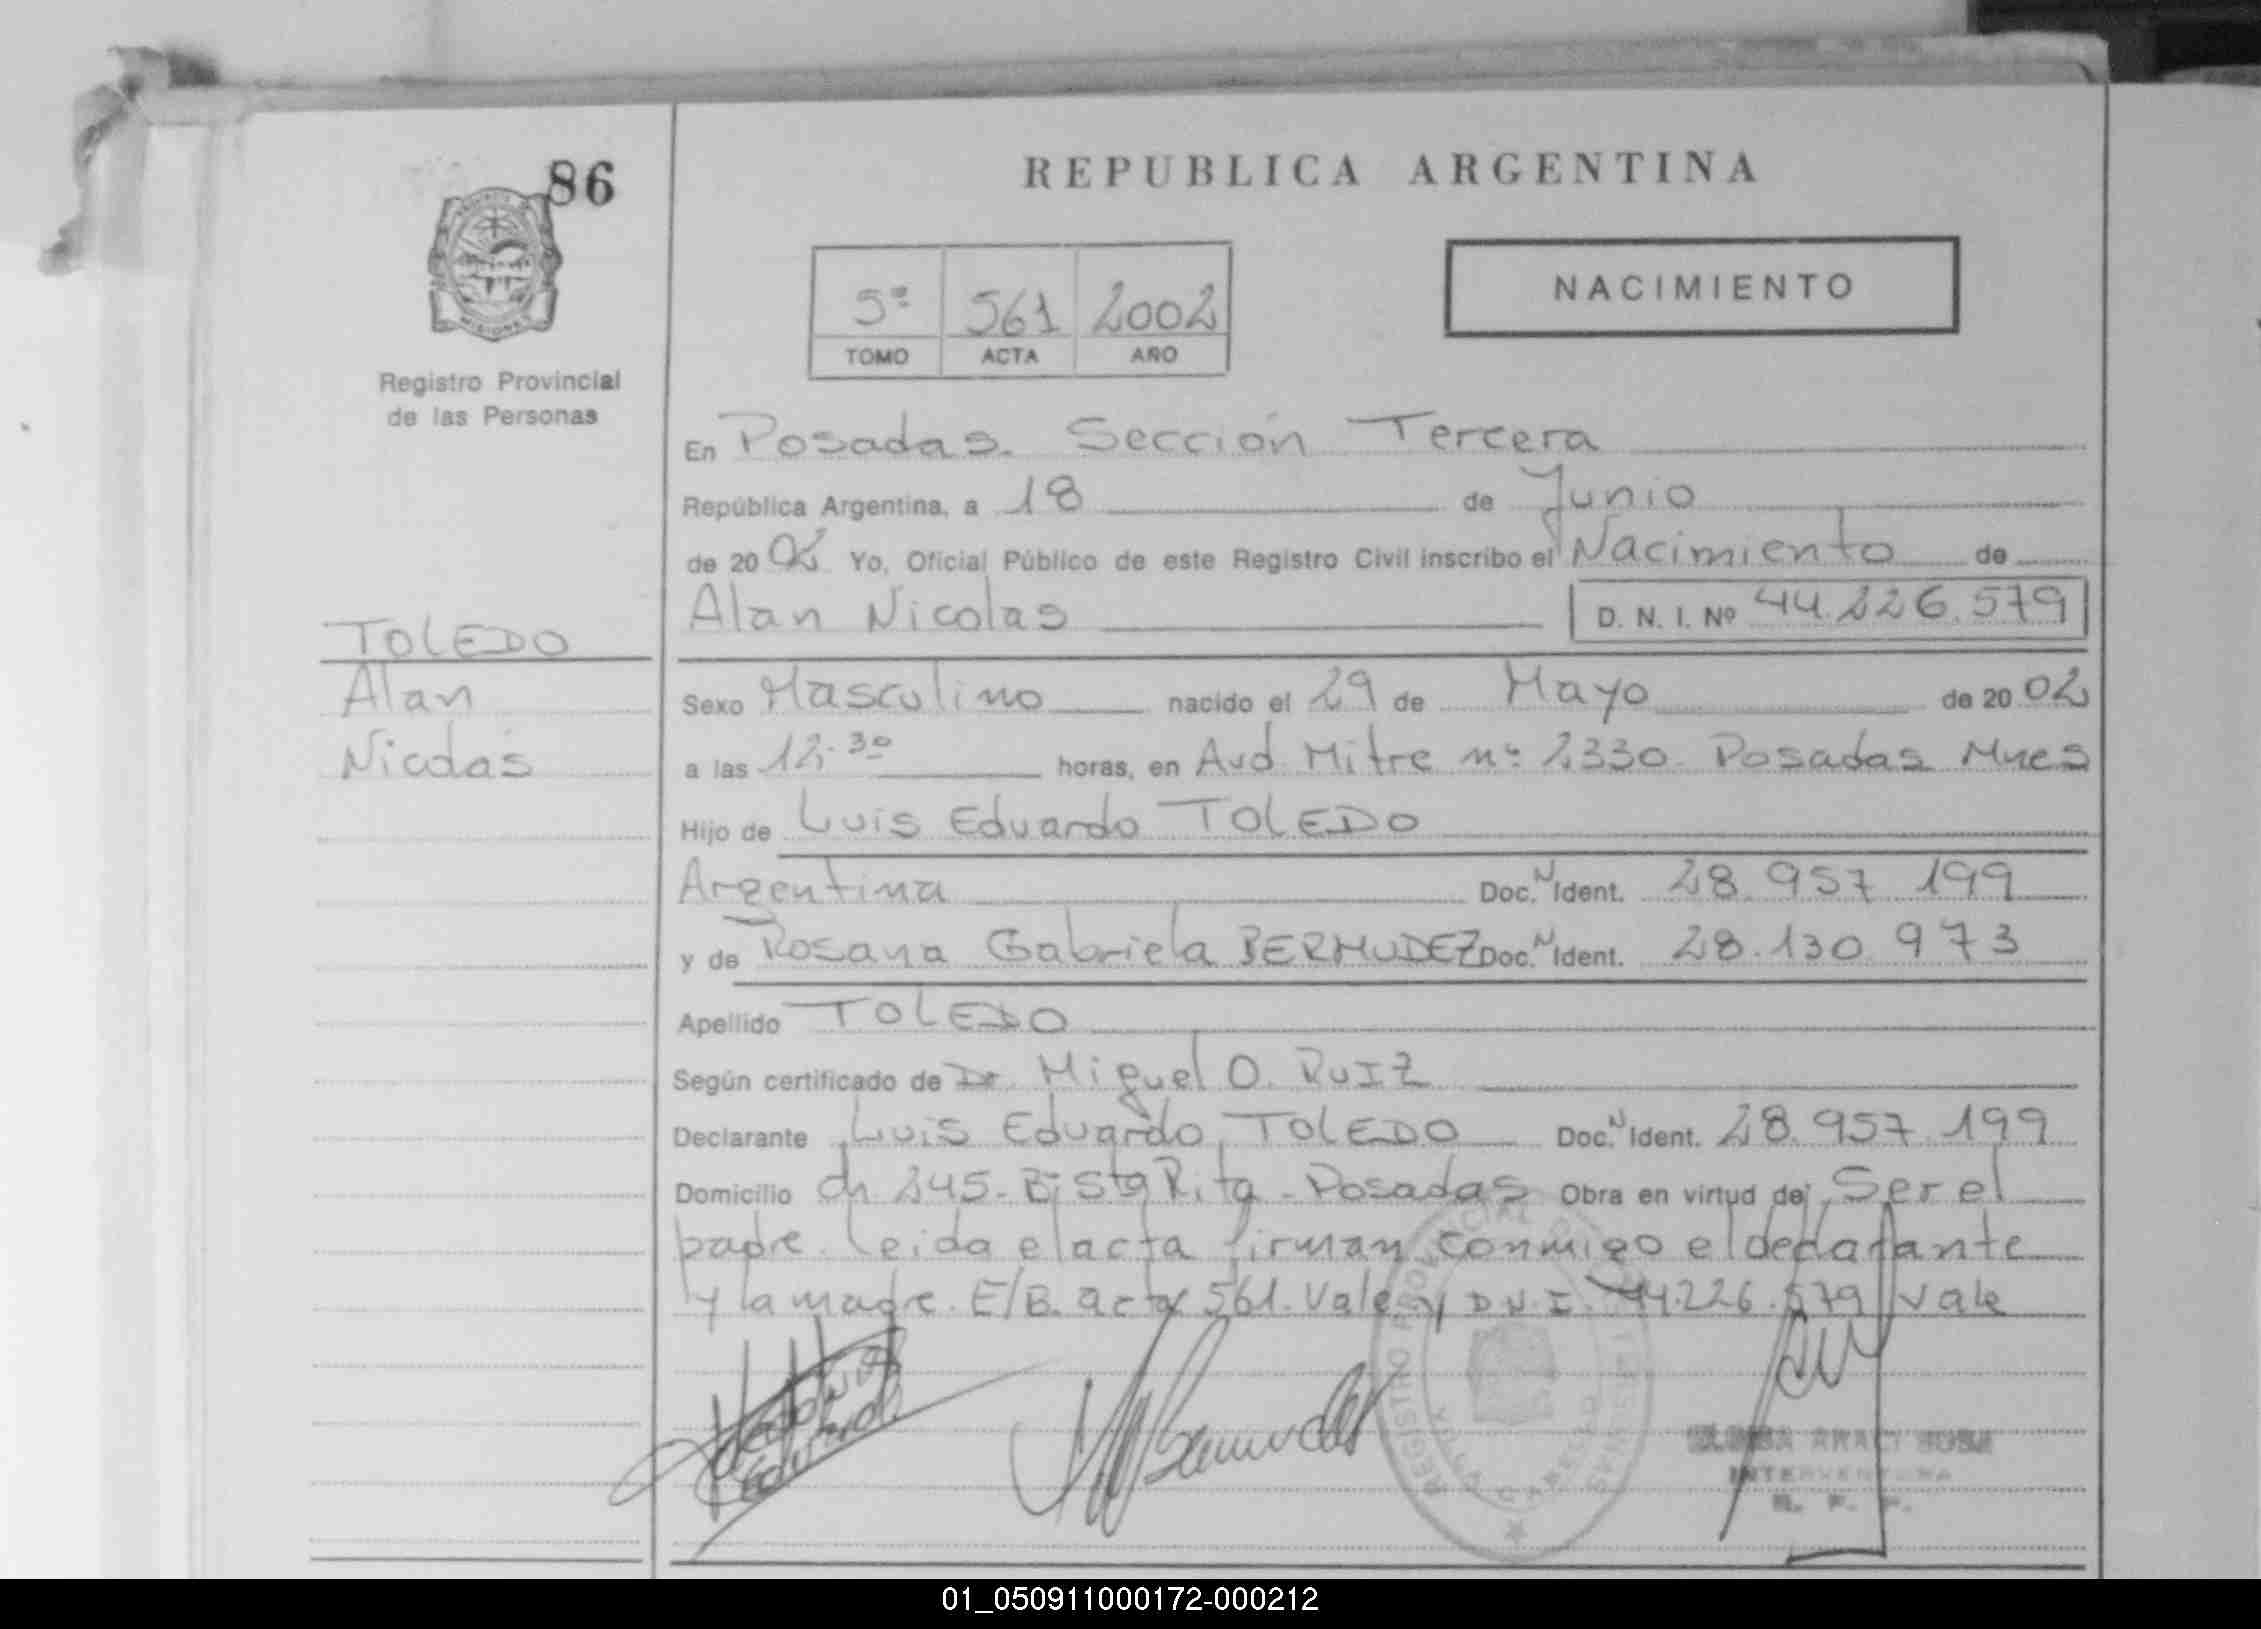 86
REPUBLICA ARGENTINA
NACIMIENTO
5º 561 2002
TOMO ACTA AÑO
MISIONES
Registro Provincial
de las Personas
En Posadas. Sección Tercera
República Argentina, a 18 de Junio
de 20 02 Yo, Oficial Público de este Registro Civil inscribo el Nacimiento de
Alan Nicolas D. N. I. Nº 44.226.579
TOLEDO
Alan
Nicolas
Sexo Masculino nacido el 29 de Mayo de 20 02
a las 12.30 horas, en Avd Mitre nº 2330. Posadas Mnes
Hijo de Luis Eduardo TOLEDO
Argentina Doc. N Ident. 28.957.199
y de Rosana Gabriela BERMUDEZ Doc. N Ident. 28.130.973
Apellido TOLEDO
Según certificado de Dr. Miguel O. RUIZ
Declarante Luis Eduardo TOLEDO Doc. N Ident. 28.957.199
Domicilio ch 245. Bº Sta Rita - Posadas Obra en virtud de Ser el
padre. leida el acta firman conmigo el declarante
y la madre. E/B. acta 561. Vale y D.N.I. 44.226.579 vale
REGISTRO PROVINCIAL
INTERVENTORA
R. P. P.
01_050911000172-000212